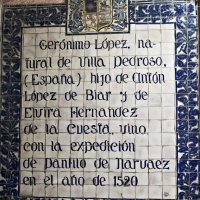 Gerónimo López, na-
tural de Villa Pedroso,
(España) hijo de Antón
López de Biar y de
Elvira Hernandez
de la Cuesta, vino
con la expedición
de Panfilo de Narvaez
en el año de 1520